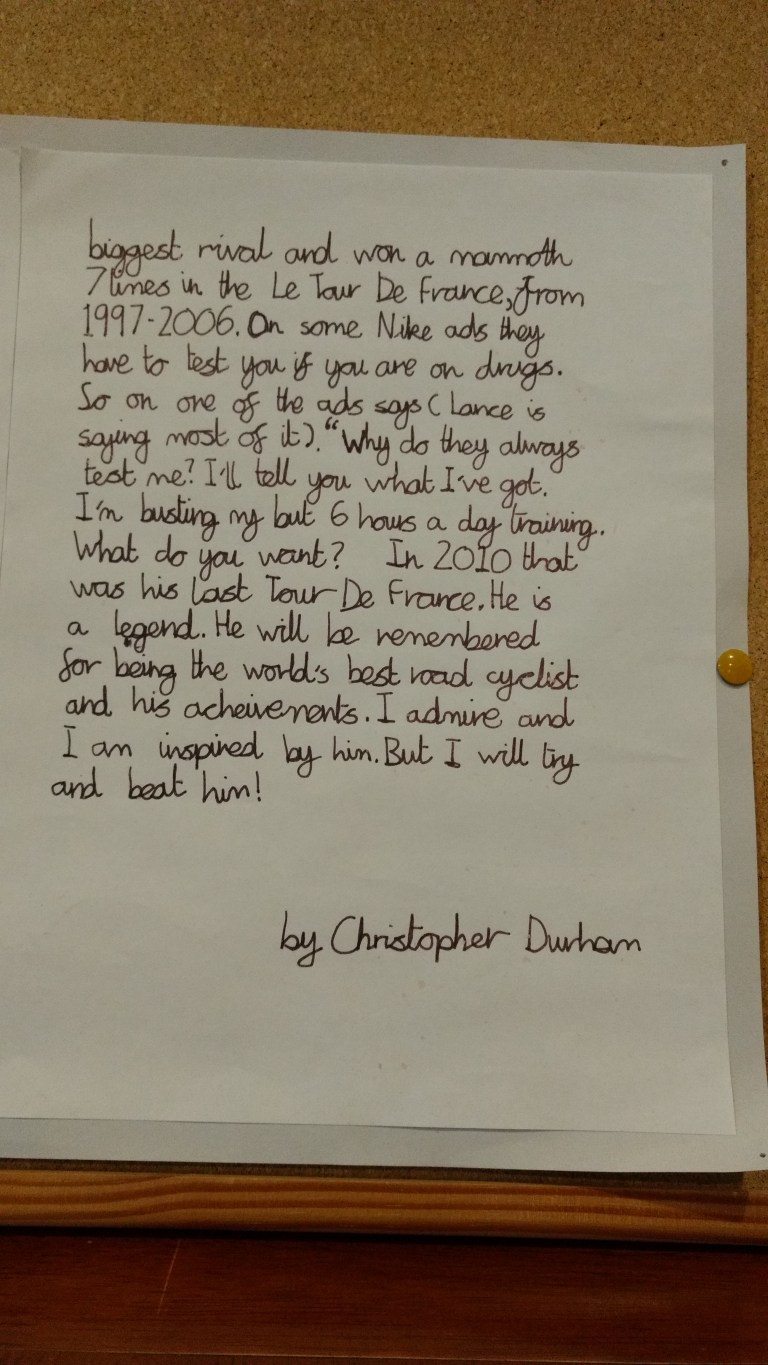 biggest rival and won a mammoth
7 times in the Le Tour De France, from
1997-2006. On some Nike ads they
have to test you if you are on drugs.
So on one of the ads says ( Lance is
saying most of it). "Why do they always
test me? I'll tell you what I've got.
I'm busting my but 6 hours a day training.
What do you want? In 2010 that
was his last Tour De France. He is
a legend. He will be remembered
for being the world's best road cyclist
and his acheivements. I admire and
I am inspired by him. But I will try
and beat him!
by Christopher Durham